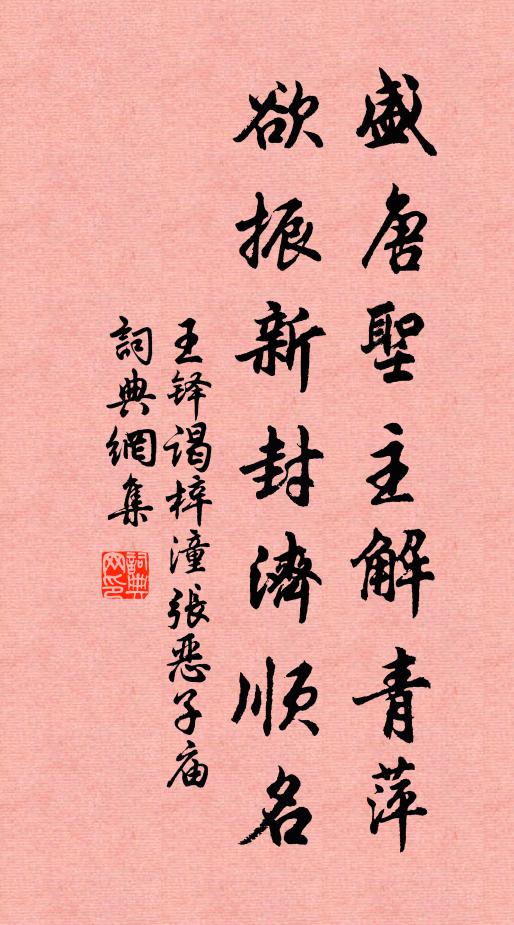 盛唐聖主解青萍
欲振新封濟順名
王铎谒梓潼張恶子庙
詞典網集
詞典网印